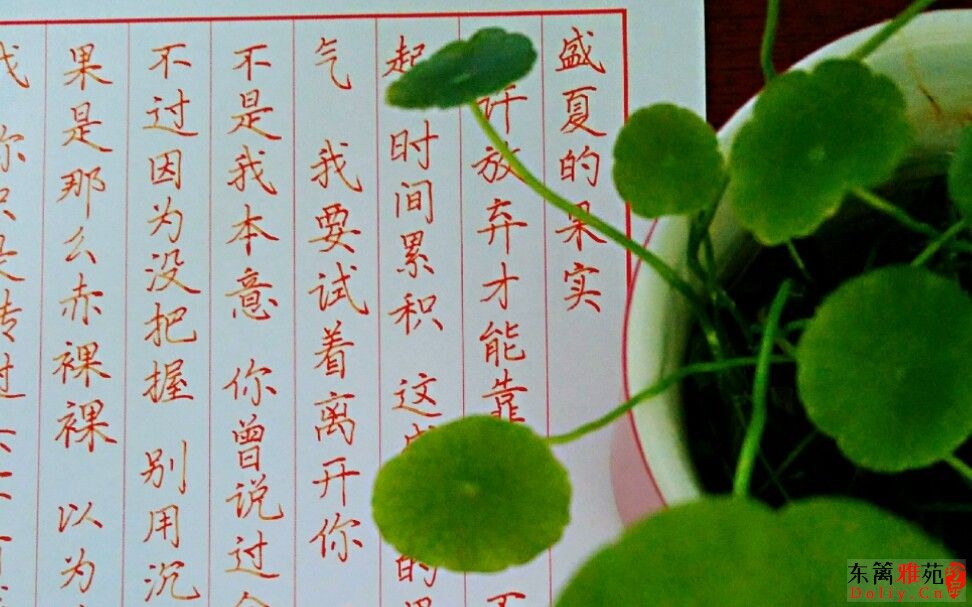 盛夏的果实
许放弃才能靠 不
起 时间累积 这 的
气 我要试着离开你
不是我本意 你曾说过
不过因为没把握 别用沉
果是那么赤裸裸 以为
你只是转过
东篱雅苑
Dolly.Cn